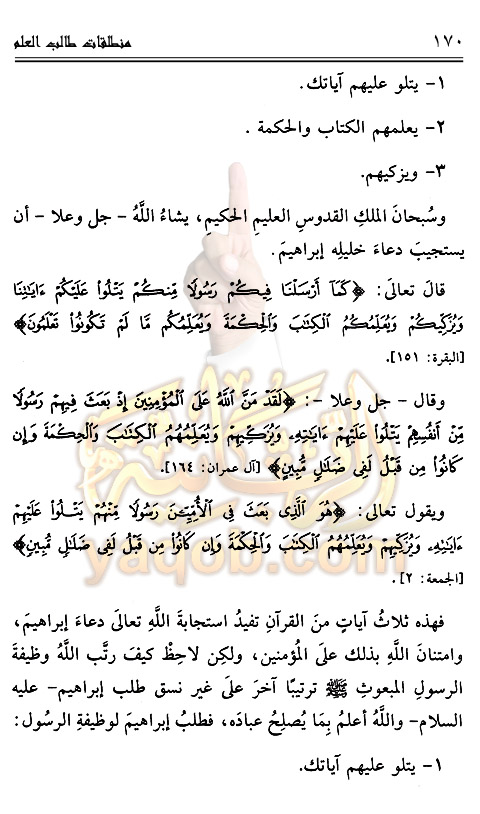 ١٧٠ منطلقات طالب العلم
١- يتلو عليهم آياتك.
٢- يعلمهم الكتاب والحكمة .
٣- ويزكيهم.
وسُبحانَ الملكِ القدوسِ العليمِ الحكيمِ، يشاءُ اللَّهُ - جل وعلا - أن
يستجيبَ دعاءَ خليلِه إبراهيمَ.
قالَ تعالَى: ﴿كَمَآ أَرْسَلْنَا فِيكُمْ رَسُولًا مِّنكُمْ يَتْلُوا۟ عَلَيْكُمْ ءَايَٰتِنَا
وَيُزَكِّيكُمْ وَيُعَلِّمُكُمُ ٱلْكِتَٰبَ وَٱلْحِكْمَةَ وَيُعَلِّمُكُم مَّا لَمْ تَكُونُوا۟ تَعْلَمُونَ﴾
[البقرة: ١٥١].
وقال - جل وعلا -: ﴿لَقَدْ مَنَّ ٱللَّهُ عَلَى ٱلْمُؤْمِنِينَ إِذْ بَعَثَ فِيهِمْ رَسُولًا
مِّنْ أَنفُسِهِمْ يَتْلُوا۟ عَلَيْهِمْ ءَايَٰتِهِۦ وَيُزَكِّيهِمْ وَيُعَلِّمُهُمُ ٱلْكِتَٰبَ وَٱلْحِكْمَةَ وَإِن
كَانُوا۟ مِن قَبْلُ لَفِى ضَلَٰلٍ مُّبِينٍ﴾ [آل عمران: ١٦٤].
ويقول تعالى: ﴿هُوَ ٱلَّذِى بَعَثَ فِى ٱلْأُمِّيِّۦنَ رَسُولًا مِّنْهُمْ يَتْلُوا۟ عَلَيْهِمْ
ءَايَٰتِهِۦ وَيُزَكِّيهِمْ وَيُعَلِّمُهُمُ ٱلْكِتَٰبَ وَٱلْحِكْمَةَ وَإِن كَانُوا۟ مِن قَبْلُ لَفِى ضَلَٰلٍ مُّبِينٍ﴾
[الجمعة: ٢].
yaqob.com
فهذه ثلاثُ آياتٍ منَ القرآنِ تفيدُ استجابةَ اللَّهِ تعالَى دعاءَ إبراهيمَ،
وامتنانَ اللَّهِ بذلك علَى المُؤمنين، ولكن لاحِظْ كيفَ رتَّب اللَّهُ وظيفةَ
الرسولِ المبعوثِ ﷺ ترتيبًا آخرَ علَى غير نسق طلب إبراهيم- عليه
السلام- واللَّه أعلمُ بِمَا يُصلِحُ عبادَه، فطلبُ إبراهيمَ لوظيفةِ الرسُول:
١- يتلو عليهم آياتك.